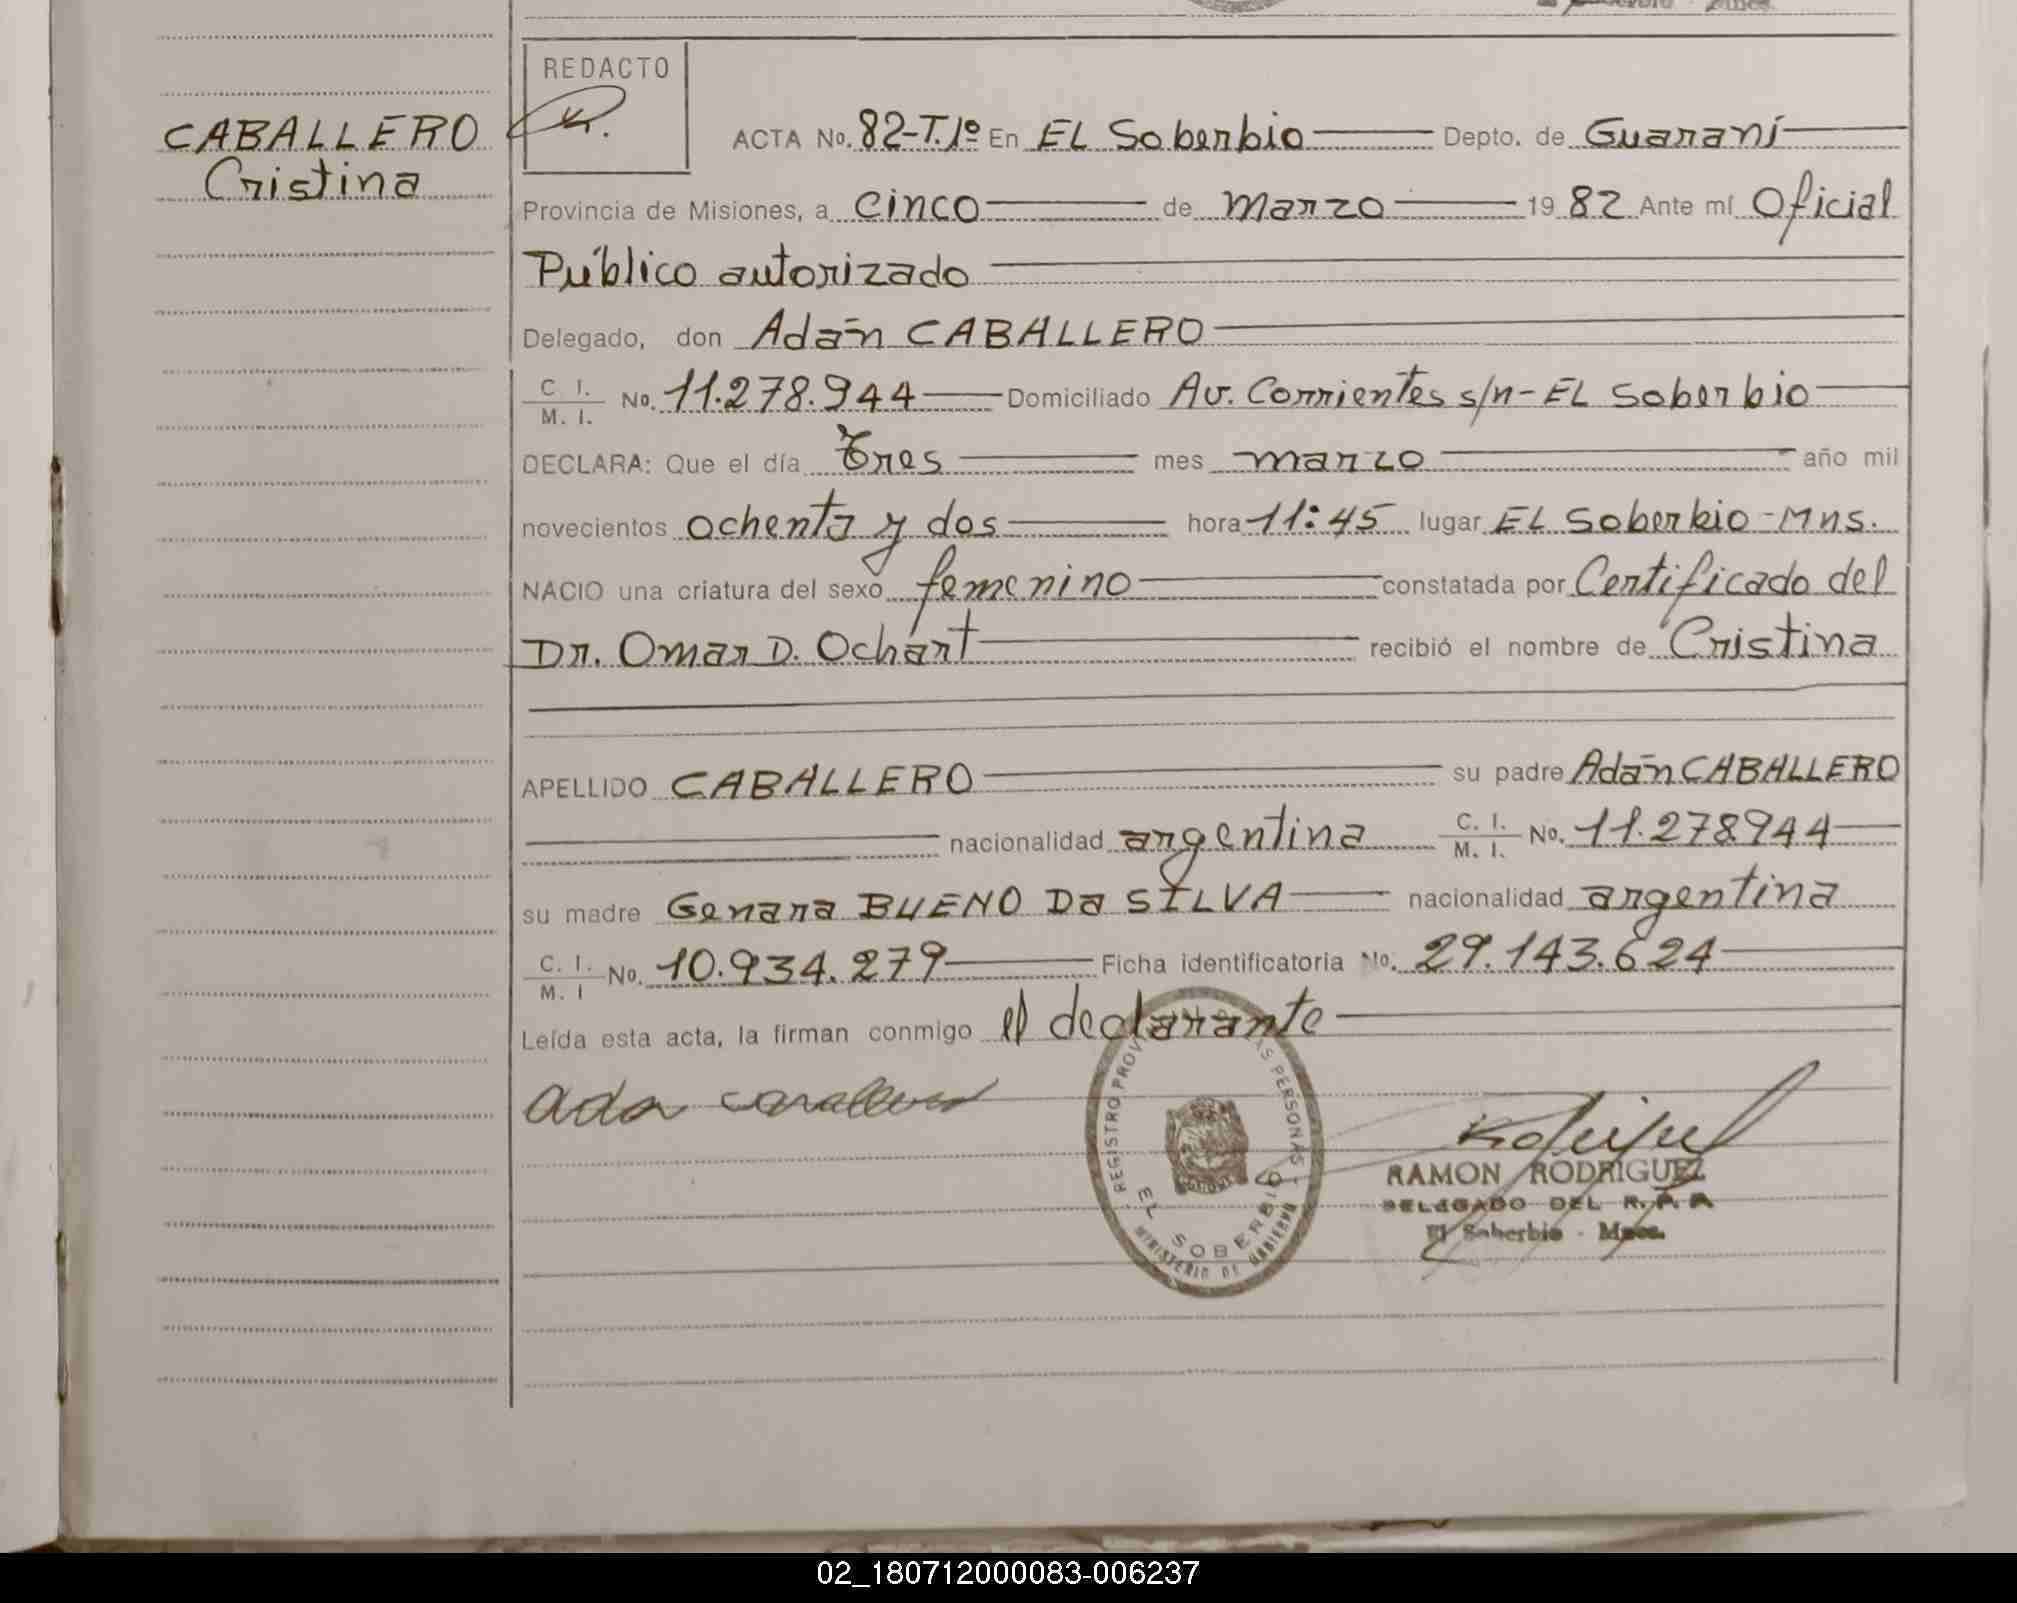 CABALLERO
Cristina
REDACTO
ACTA No. 82-T.1º En EL Soberbio Depto. de Guaraní
Provincia de Misiones, a cinco de marzo 19 82 Ante mí Oficial
Público autorizado
Delegado, don Adán CABALLERO
C. I. / M. I. No. 11.278.944 Domiciliado Av. Corrientes s/n - EL Soberbio
DECLARA: Que el día Tres mes marzo año mil
novecientos ochenta y dos hora 11:45 lugar EL Soberbio - Mns.
NACIO una criatura del sexo femenino constatada por Certificado del
Dr. Omar D. Ochart recibió el nombre de Cristina
APELLIDO CABALLERO su padre Adán CABALLERO
nacionalidad argentina C. I. / M. I. No. 11.278944
su madre Genara BUENO Da SILVA nacionalidad argentina
C. I. / M. I No. 10.934.279 Ficha identificatoria No. 29.143.624
Leída esta acta, la firman conmigo el declarante
REGISTRO PROV PERSONAS
EL SOBERBIO
MINISTERIO DE GOBIERNO
RAMON RODRIGUEZ
DELEGADO DEL R.
El Soberbio - Mnes.
02_180712000083-006237